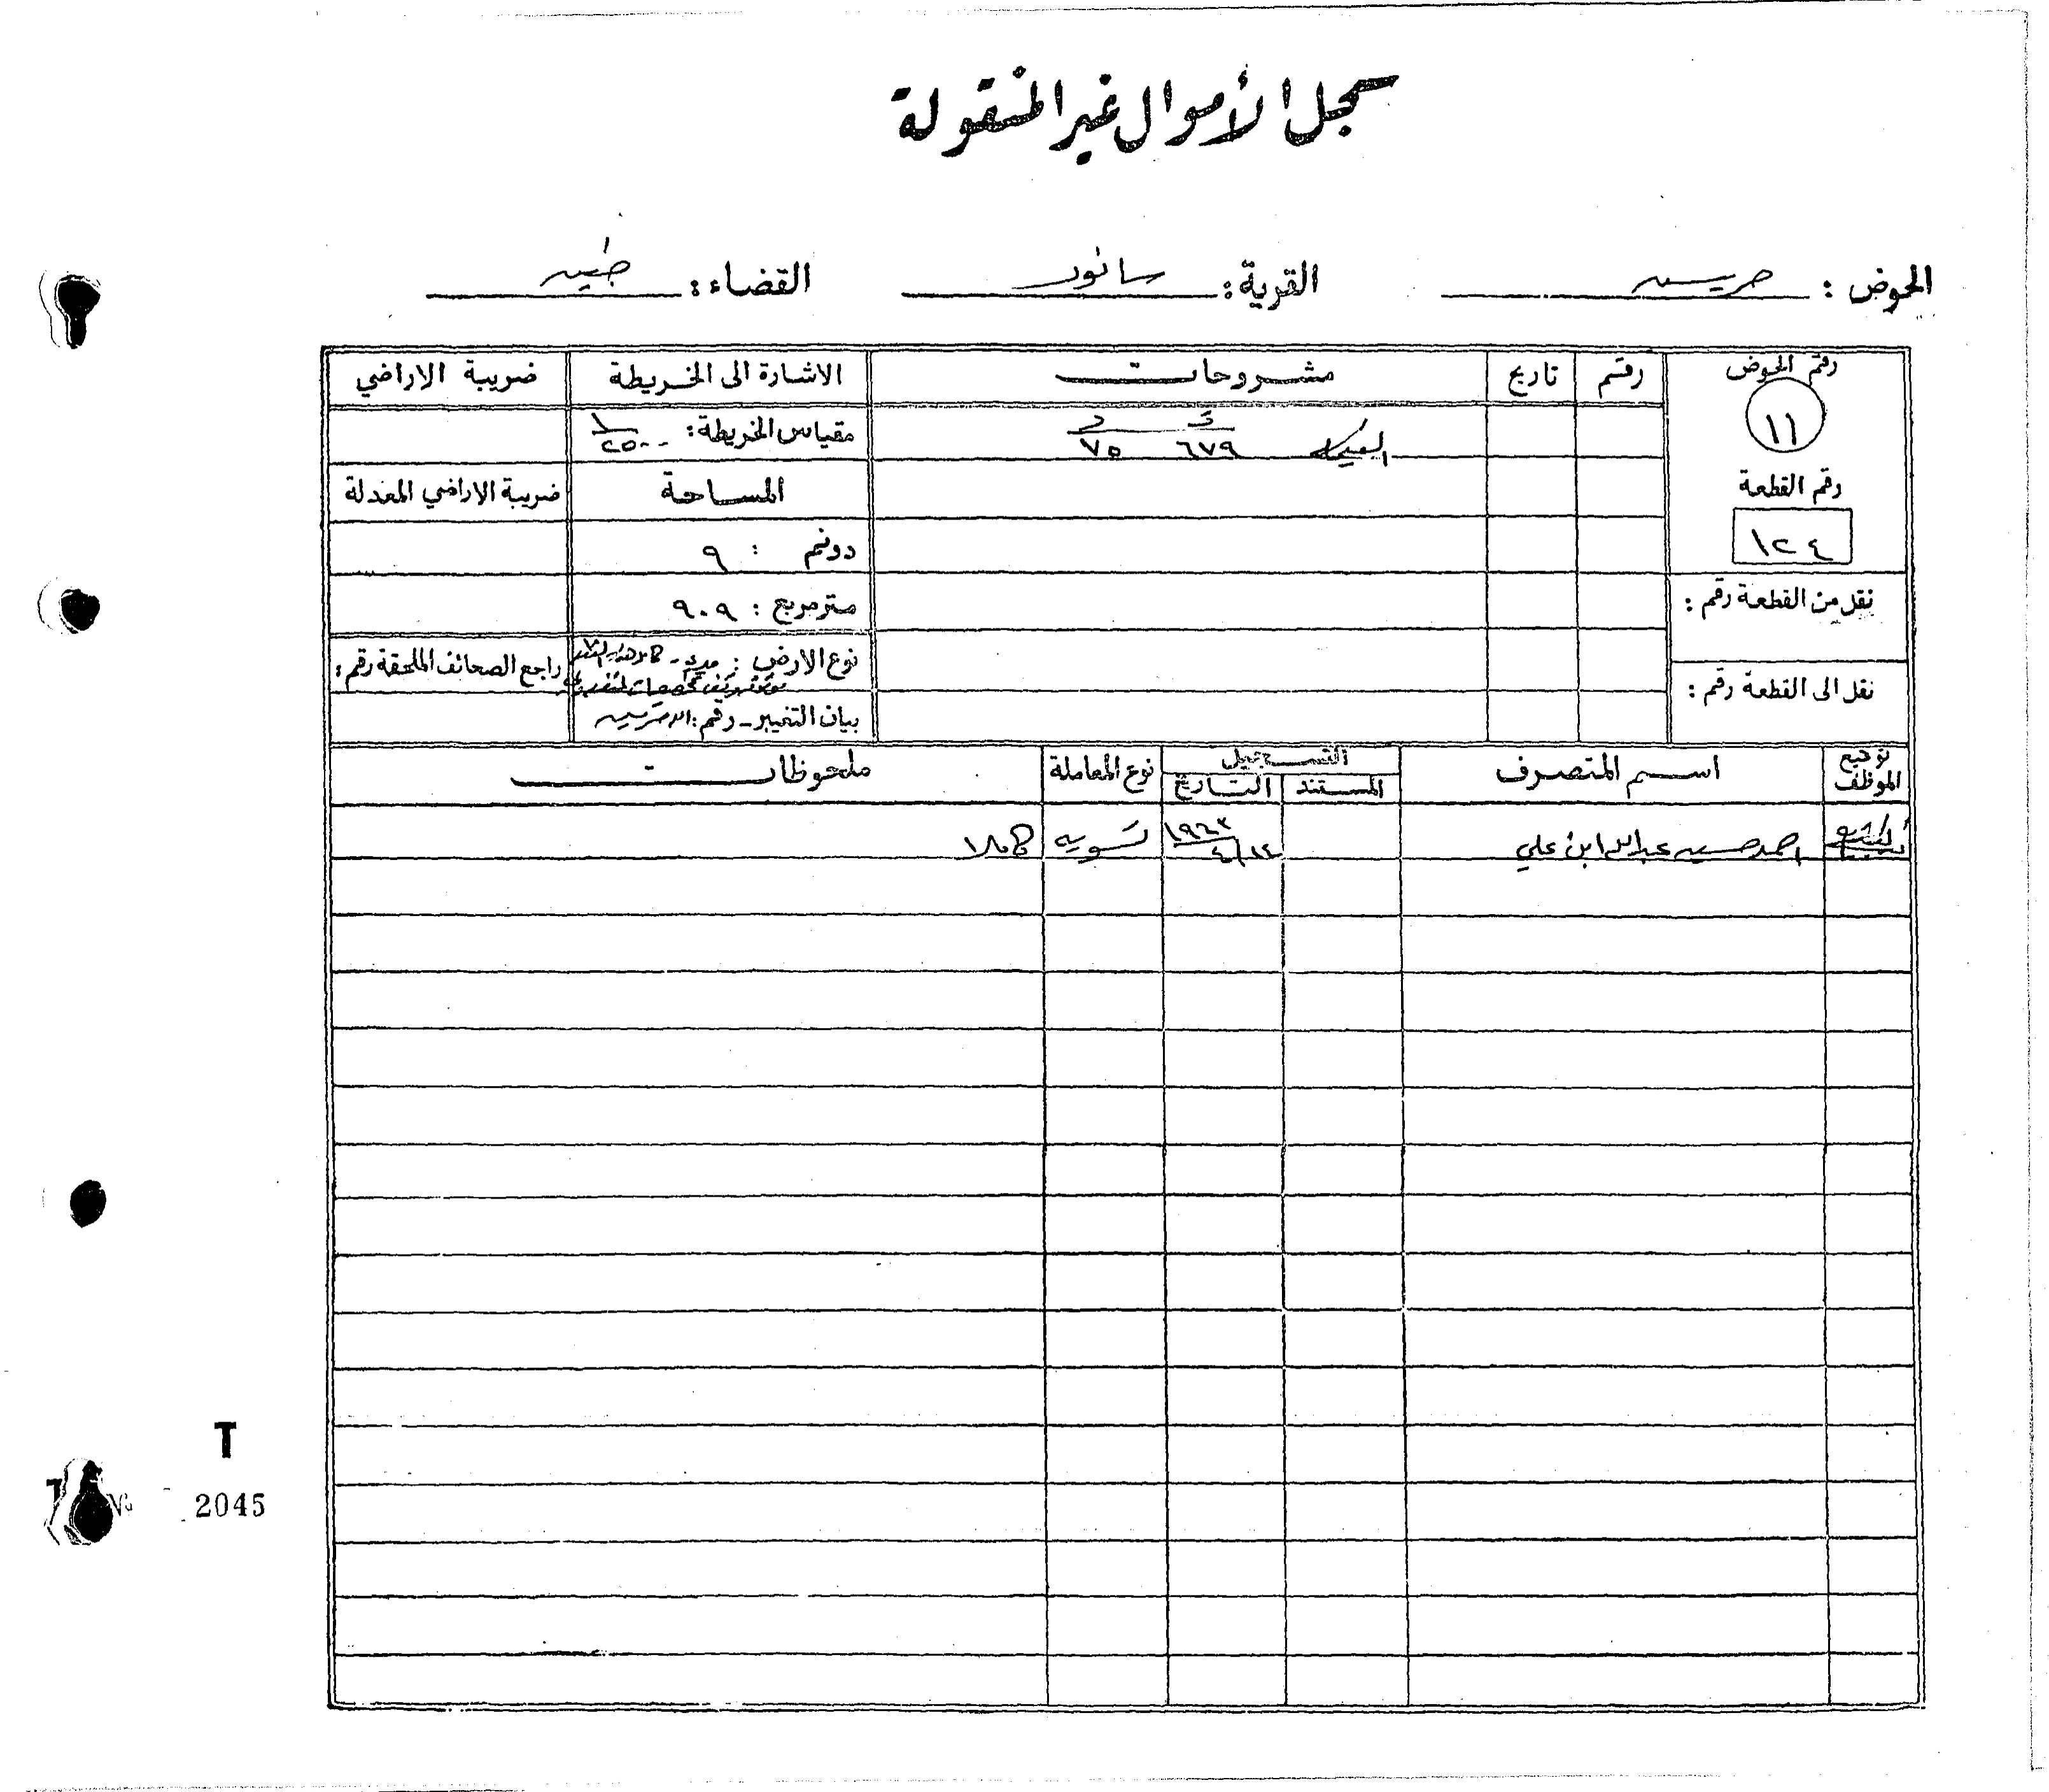 سجل الأموال غير المنقولة
الحوض : حريسه القرية : سانور القضاء : جنين
رقم الحوض رقم تاريخ مشروحات الاشارة الى الخريطة ضريبة الاراضي
١١ ٦٧٩ ٧٥ مقياس الخريطة : ١/٢٥٠٠
رقم القطعة المساحة ضريبة الاراضي المعدلة
١٢٤ دونم : ٩
نقل من القطعة رقم : متر مربع : ٩٠٩
نوع الارض : ميري - راجع الصحائف الملحقة رقم :
نقل الى القطعة رقم :
بيان التغيير - رقم :
توقيع الموظف اسم المتصرف التسجيل نوع المعاملة ملحوظات
المستند التاريخ
احمد حسين عبدالله ابن علي ١٩٦٣ ٤/١٤ تسويه كاملا
T
No 2045